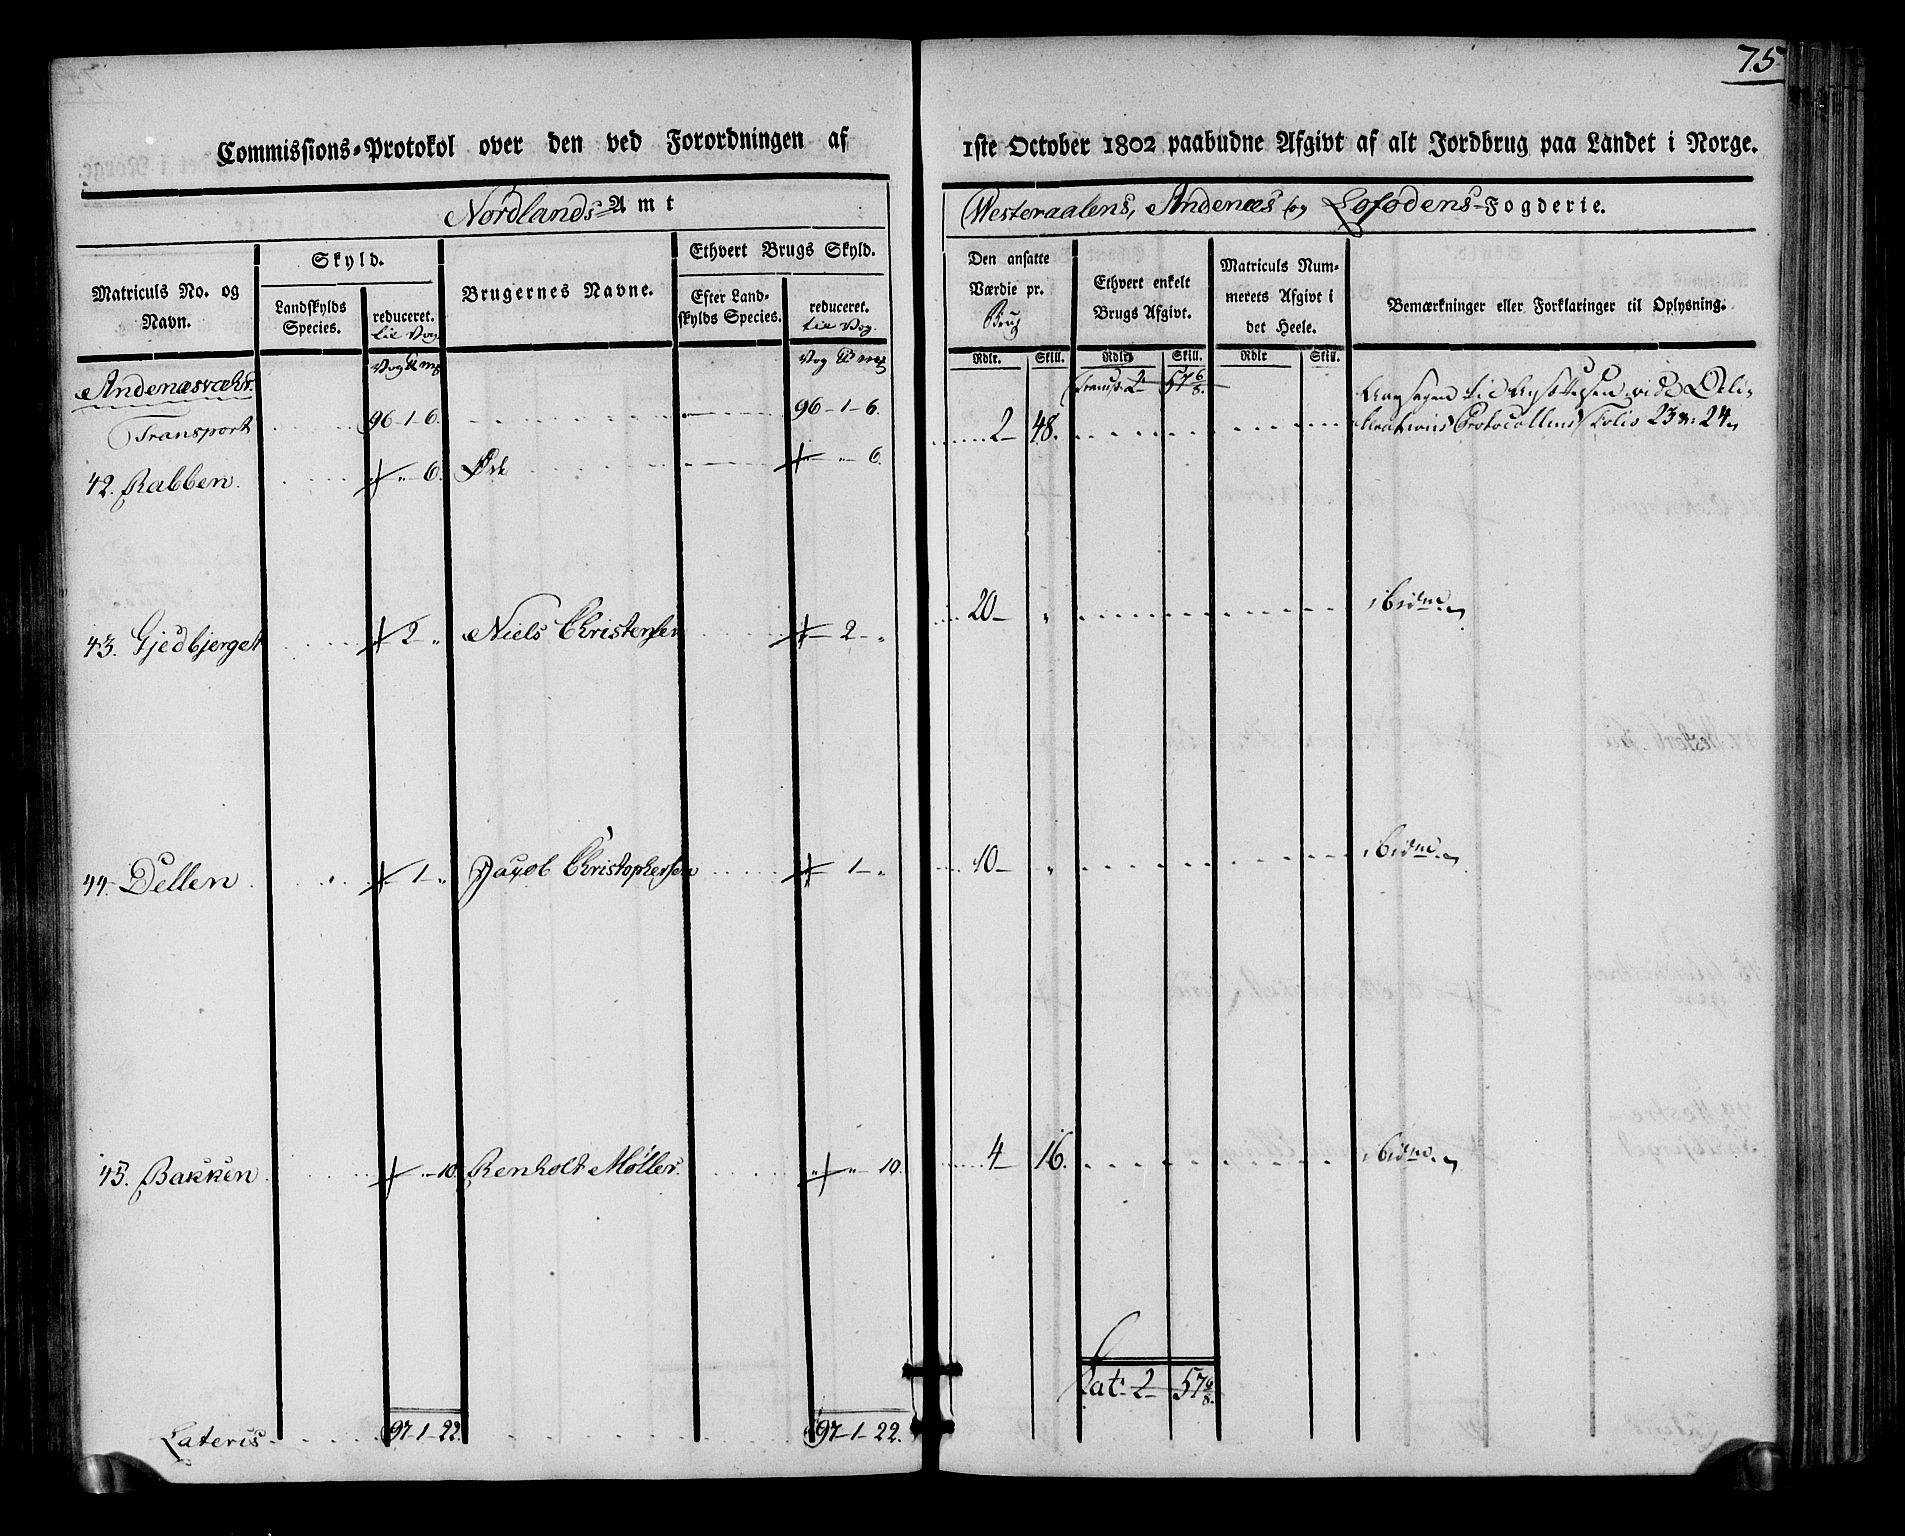 75
Commissions-Protokol over den ved Forordningen af 1ste October 1802 paabudne Afgivt af alt Jordbrug paa Landet i Norge.
Nordlands Amt
Westeraalens, Andenæs og Lofodens-Fogderie.
Matriculs No. og Navn.
Skyld.
Landskylds Species.
reduceret. til Vog
Brugernes Navne.
Ethvert Brugs Skyld.
Efter Landskylds Species.
reduceret. til Vog.
Den ansatte Værdie pr. Brug
Ethvert enkelt Brugs Afgivt.
Matriculs Nummerets Afgivt i det Heele.
Bemærkninger eller Forklaringer til Oplysning.
Vog ℔ mk Vog ℔ mk Rdlr. Skill. Rdlr Skill. Rdlr Skill.
Andenæsvæhr.
Transport 96-1-6. 96-1-6. Transp. 2 57 6/8.
42. Rabben. - „ - 6. Øde - „ - 6. 2 - 48. vide Deli-
berations Protocollens Folio 23 & 24.
43. Gjedbjerget - 2 - „ Niels Christensen - 2 - „ 20 - „ ibidm.
44. Dellen - 1 - „ Jacob Christophersen - 1 - „ 10 - „ ibidm.
45. Bakken - „ - 10. Renholt Møller. „ - „ - 10. 4 - 16. ibidm.
Lat. 2 - 57 6/8.
Lateris 97-1-22. 97-1-22.